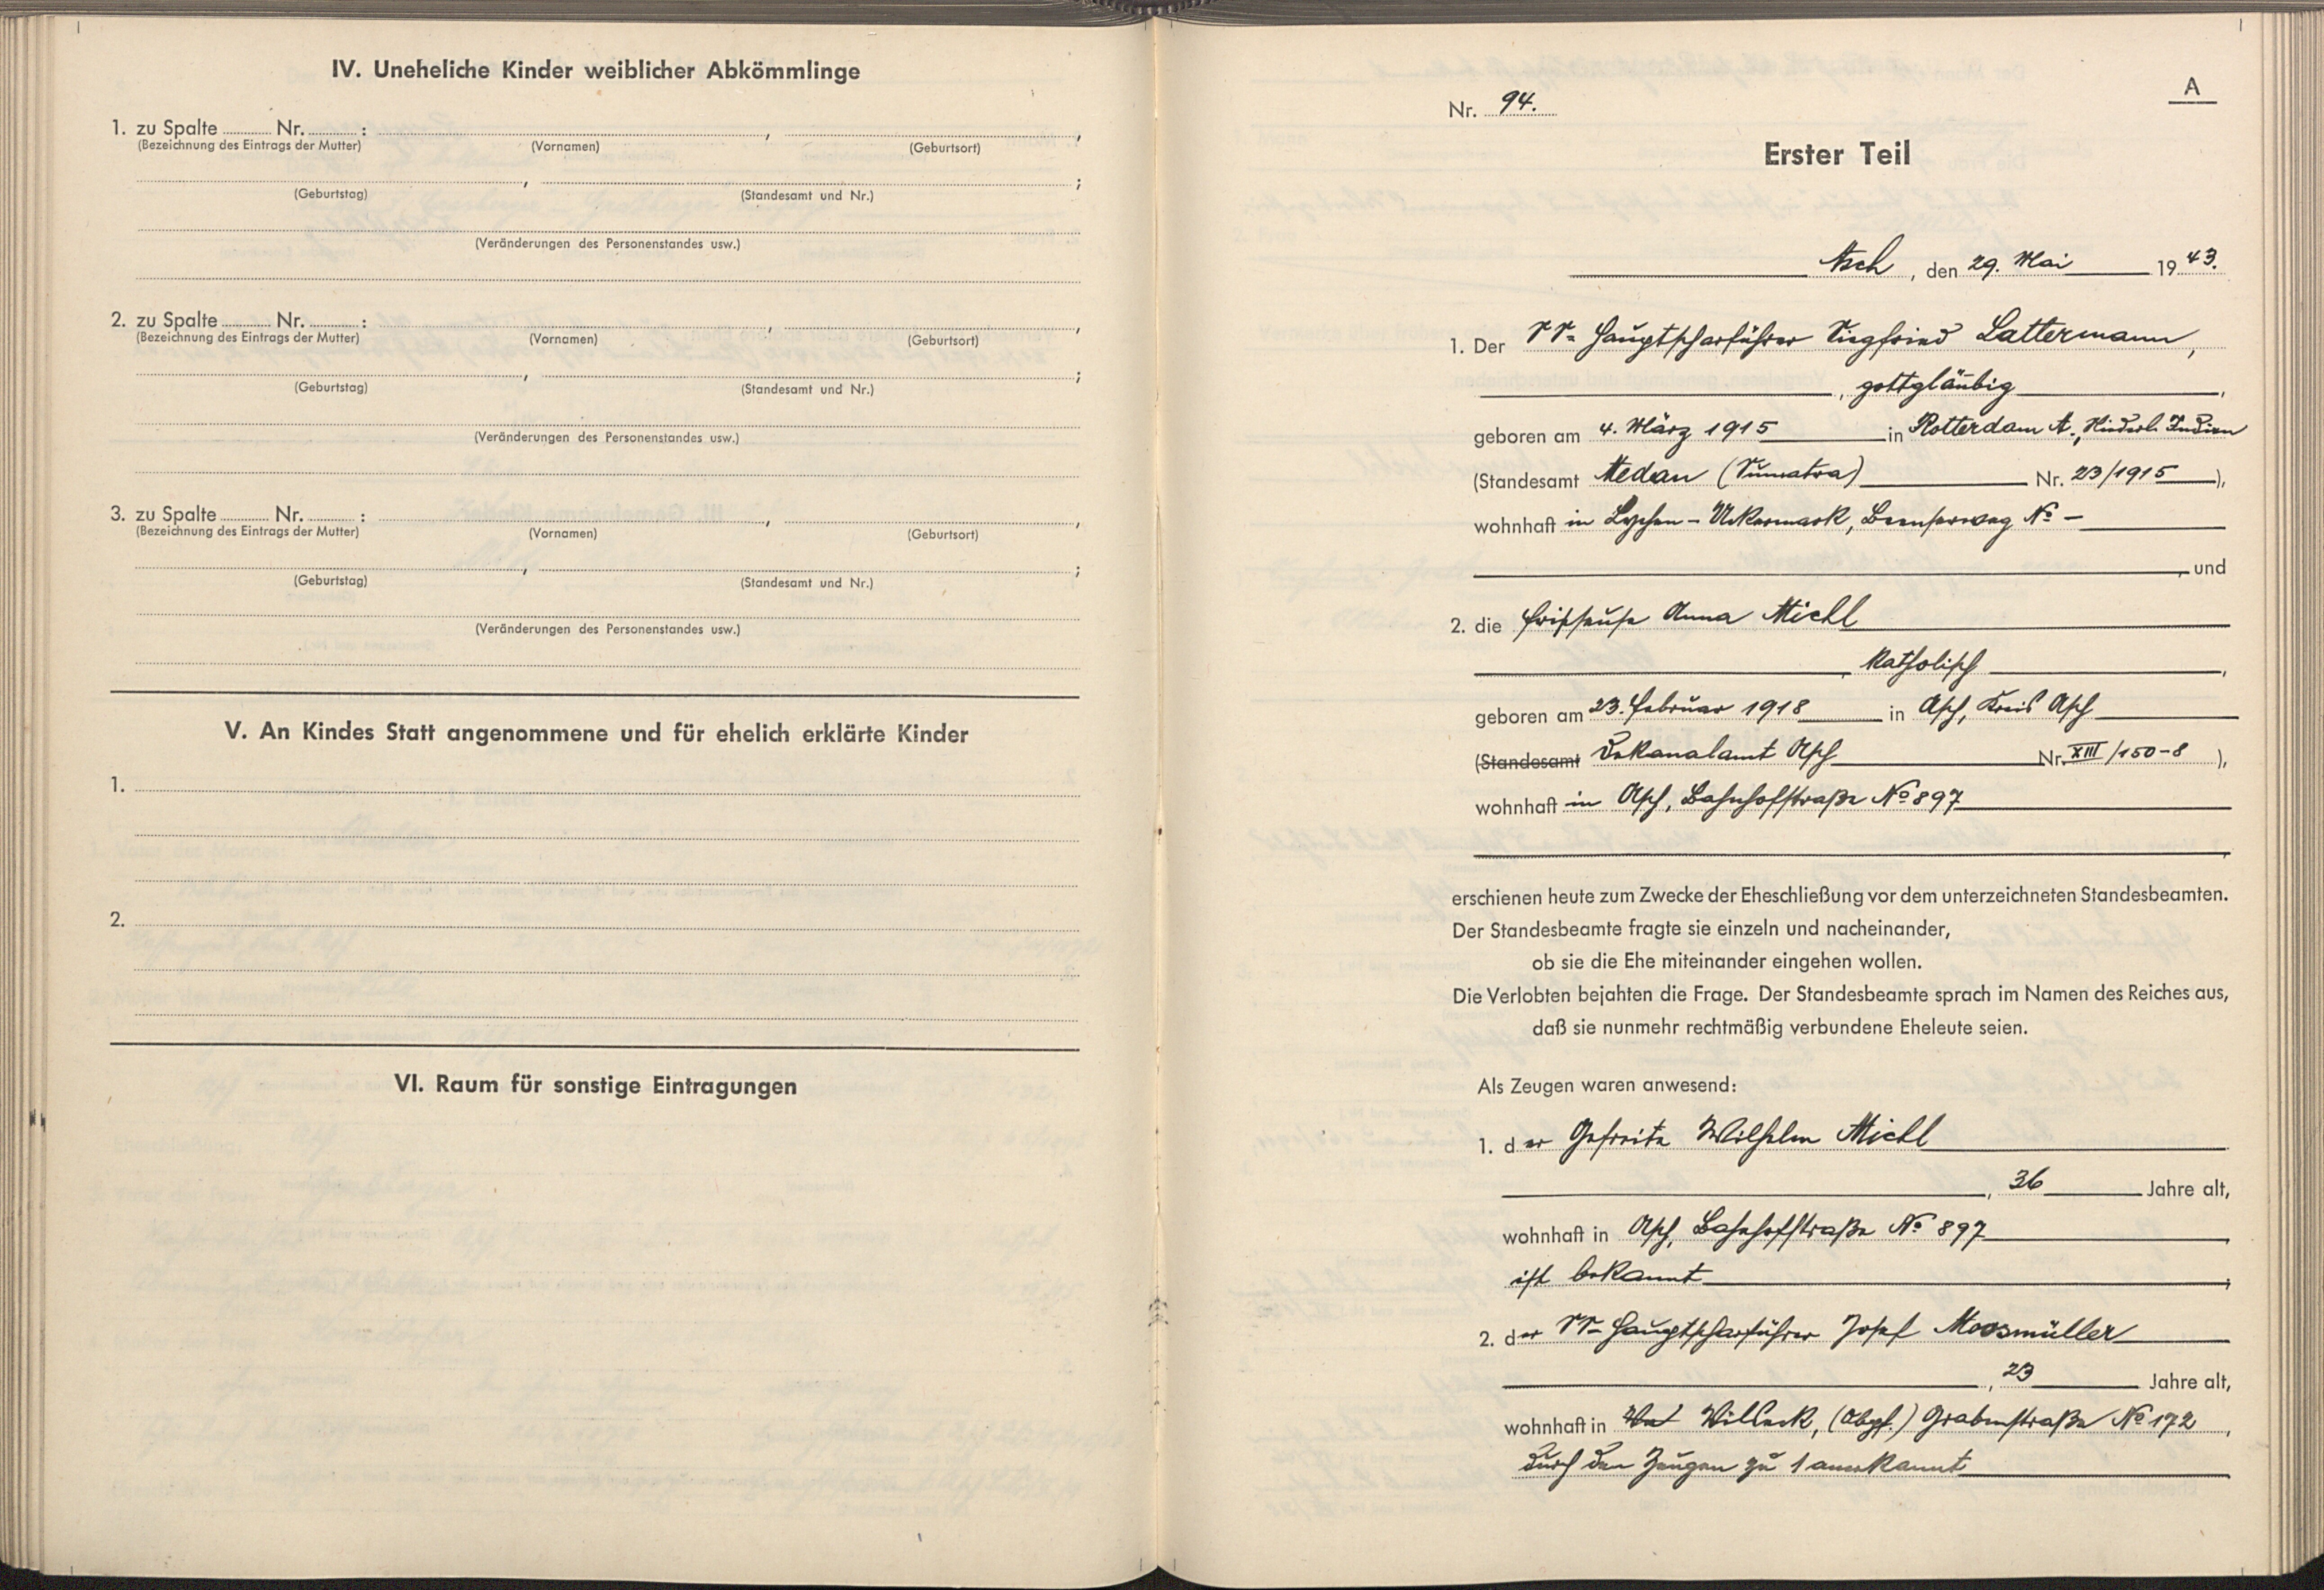 IV. Uneheliche Kinder weiblicher Abkömmlinge
1. zu Spalte Nr. : , ,
(Bezeichnung des Eintrags der Mutter) (Vornamen) (Geburtsort)
, ;
(Geburtstag) (Standesamt und Nr.)
(Veränderungen des Personenstandes usw.)
2. zu Spalte Nr. : , ,
(Bezeichnung des Eintrags der Mutter) (Vornamen) (Geburtsort)
, ;
(Geburtstag) (Standesamt und Nr.)
(Veränderungen des Personenstandes usw.)
3. zu Spalte Nr. : , ,
(Bezeichnung des Eintrags der Mutter) (Vornamen) (Geburtsort)
, ;
(Geburtstag) (Standesamt und Nr.)
(Veränderungen des Personenstandes usw.)
V. An Kindes Statt angenommene und für ehelich erklärte Kinder
1.
2.
VI. Raum für sonstige Eintragungen
A
Nr. 94.
Erster Teil
Asch, den 29. Mai 1943.
1. Der SS-Hauptscharführer Siegfried Lattermann,
, gottgläubig,
geboren am 4. März 1915 in Rotterdam A., Niederl. Indien
(Standesamt Medan (Sumatra) Nr. 23/1915),
wohnhaft in Lychen-Uckermark, No -
, und
2. die Friseuse Anna Michl
, katholisch,
geboren am 23. Februar 1918 in Asch, Kreis Asch
(Standesamt Dekanalamt Asch Nr. XIII/150-8),
wohnhaft in Asch, Bahnhofstraße No 897
,
erschienen heute zum Zwecke der Eheschließung vor dem unterzeichneten Standesbeamten.
Der Standesbeamte fragte sie einzeln und nacheinander,
ob sie die Ehe miteinander eingehen wollen.
Die Verlobten bejahten die Frage. Der Standesbeamte sprach im Namen des Reiches aus,
daß sie nunmehr rechtmäßig verbundene Eheleute seien.
Als Zeugen waren anwesend:
1. der Gefreite Wilhelm Michl
, 36 Jahre alt,
wohnhaft in Asch, Bahnhofstraße No 897,
ist bekannt,
2. der SS-Hauptscharführer Josef Moosmüller
, 23 Jahre alt,
wohnhaft in Willeck, Grabenstraße No 172,
durch den Zeugen zu 1 anerkannt